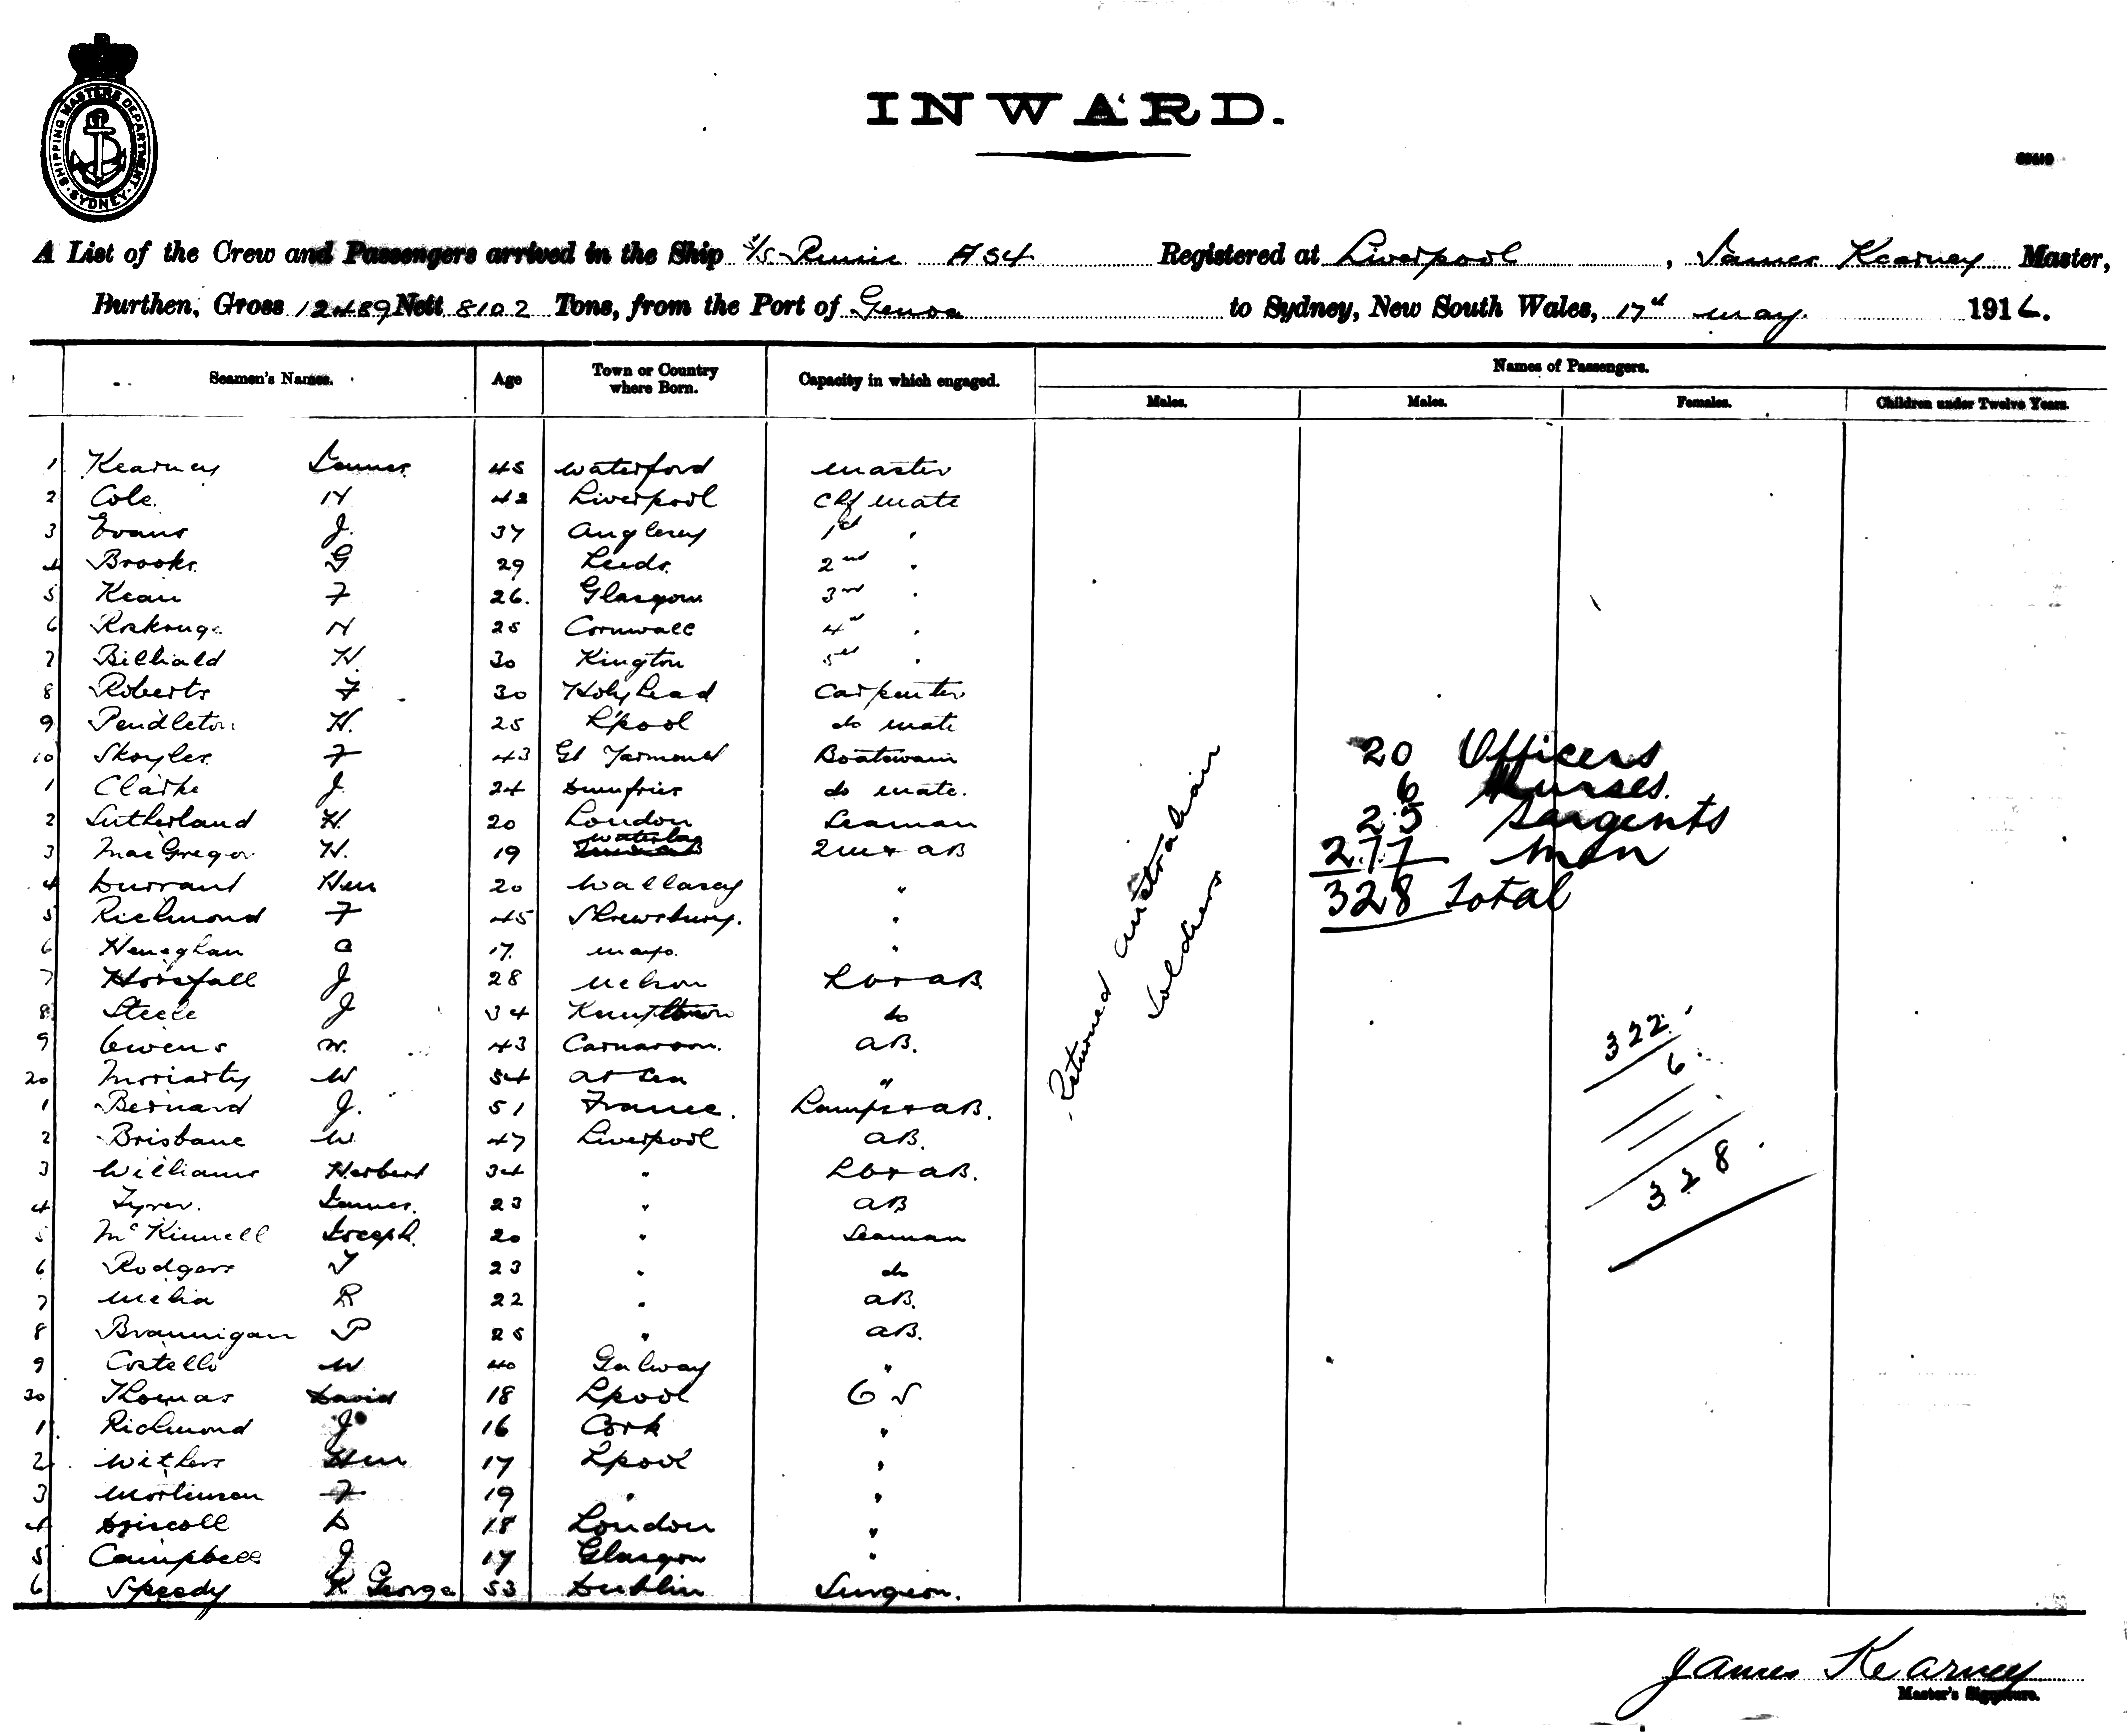 SHIPPING MASTERS DEPARTMENT. SYDNEY
INWARD.
A List of the Crew and Passengers arrived in the Ship S/S Runic A54 Registered at Liverpool, James Kearney Master,
Burthen, Gross 12489 Nett 8102 Tons, from the Port of Genoa to Sydney, New South Wales, 17th may 1916.
Seamen's Names. Age Town or Country where Born. Capacity in which engaged. Names of Passengers.
Males. Males. Females. Children under Twelve Years.
1 Kearney James 45 Waterford Master
2 Cole H 42 Liverpool Chf Mate
3 Evans J. 37 Anglesey 1st "
4 Brooks G 29 Leeds 2nd "
5 Kean F 26. Glasgow 3rd "
6 H 25 Cornwall 4th "
7 H. 30 Kington 5th "
8 Roberts F 30 Holyhead Carpenter
9 Pendleton H. 25 L'pool do mate
10 Skoyles F 43 Gt Yarmouth Boatswain
1 Clarke J 24 Dumfries do mate.
2 Sutherland H. 20 London Seaman
3 MacGregor H. 19 Waterloo 2Mr & AB
4 Durrant Hen 20 Wallasey "
5 Richmond F 45 Shrewsbury. "
6 Heneghan A 17. Mayo. "
7 Horsfall J 28 Nelson AB
8 Steele J 34 do
9 Owens W. 43 Carnarvon. AB.
20 Moriarty W 54 At Sea "
1 Bernard J. 51 France. Lamps & AB.
2 Brisbane W 47 Liverpool AB.
3 Williams Herbert 34 " AB.
4 Tyrer. James. 23 " AB
5 McKinnell Joseph. 20 " Seaman
6 Rodgers T 23 " do
7 Melia R 22 " AB.
8 Brannigan P 25 " AB.
9 Costello W 40 Galway "
30 Thomas David 18 Lpool
1 Richmond J 16 Cork "
2 Withers Hen 17 Lpool "
3 F 19 " "
4 Driscoll D 18 London "
5 Campbell J 17 Glasgow "
6 Speedy R George 53 Dublin Surgeon.
Returned Australian
Soldiers
20 Officers
6 Nurses.
25 Sargents
277 Men
328 Total
322
6
328
James Kearney
Master's Signature.